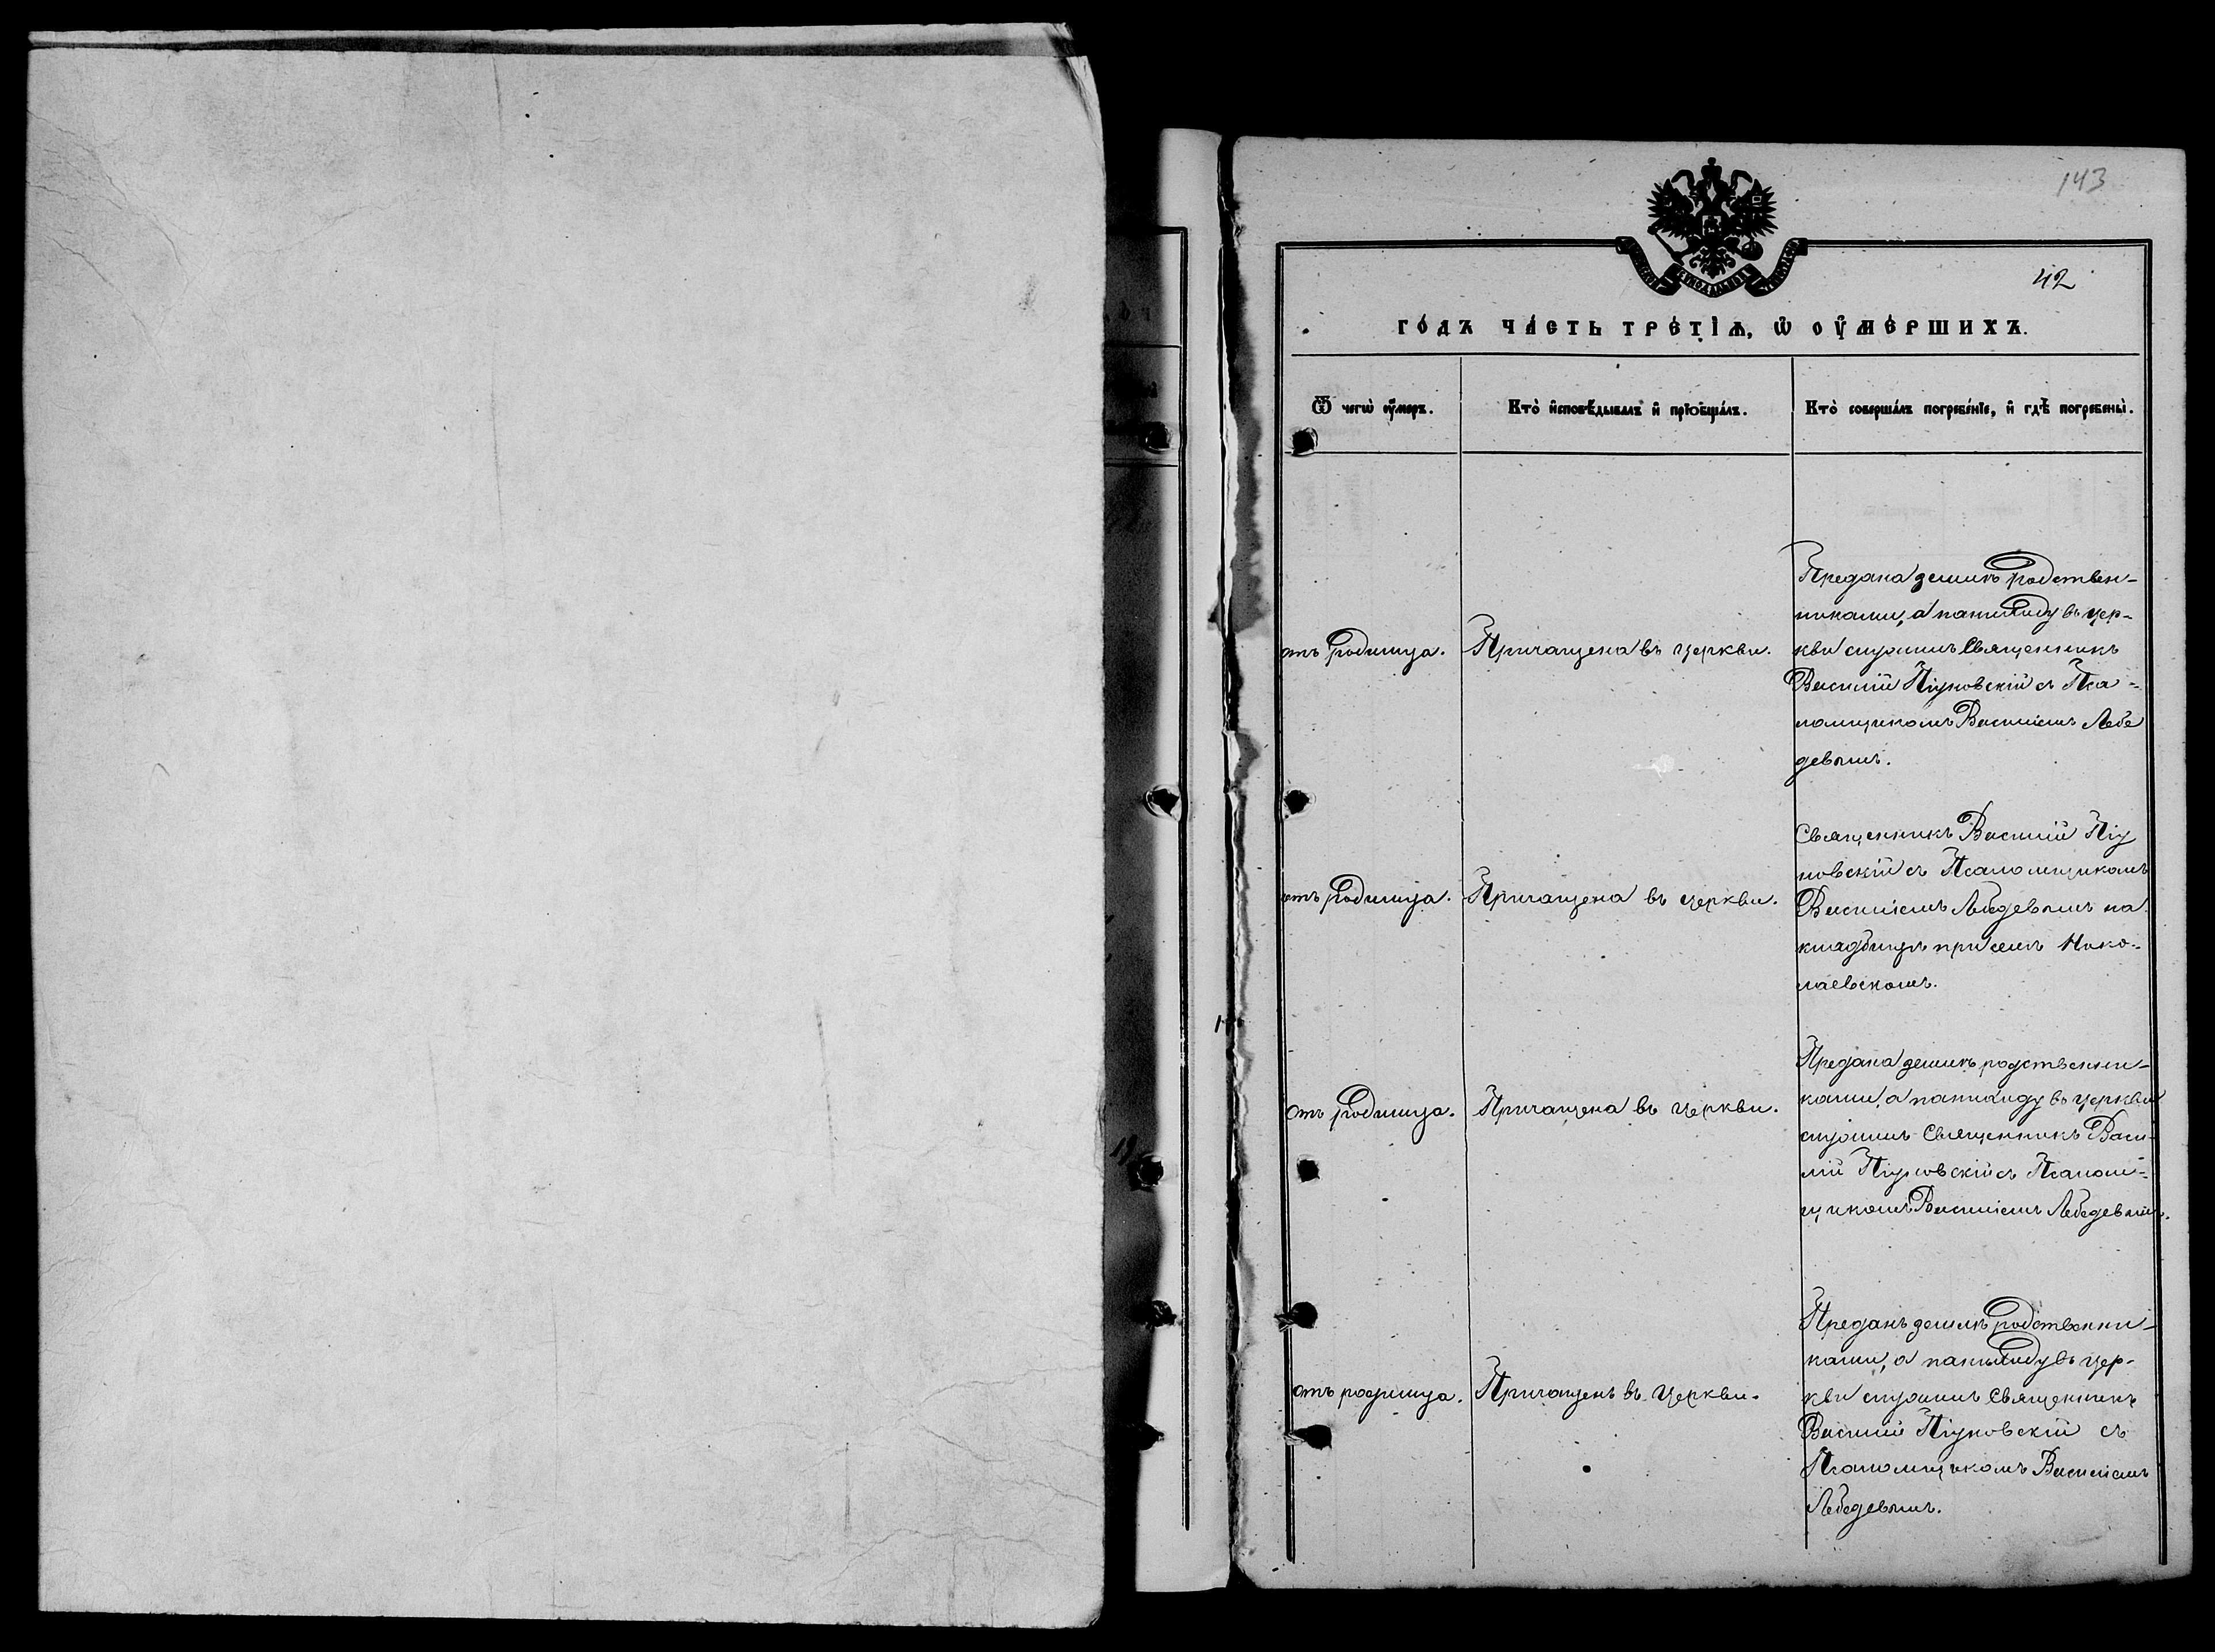 143
42
го́дъ ча́сть тре́тїѧ, ѡ҆ оу҆ме́ршихъ.
Ѿ чегѡ̀ оу҆́меръ.
Кто̀ и҆сповѣ́дывалъ и҆ прїѡбща́лъ.
Кто̀ соверша́лъ погребе́нїе, и҆ гдѣ̀ погребены̀.
отъ родимца.
Причащена въ церкви.
Предана землѣ родствен-
никами, а панихиду въ цер-
кви служилъ Священникъ
Василій Піуновскій съ Пса-
ломщикомъ Василіемъ Лебе
девымъ.
отъ родимца.
Причащена въ церкви.
Священникъ Василій Піу
новскій съ Псаломщикомъ
Василіемъ Лебедевымъ на
кладбищѣ при селѣ Нико-
лаевскомъ.
отъ родимца.
Причащена въ церкви.
Предана землѣ родственни-
ками, а панихиду въ церкви
служилъ Священникъ Васи-
лій Піуновскій съ Псалом-
щикомъ Василіемъ Лебедевымъ.
отъ родимца.
Причащенъ въ Церкви.
Преданъ землѣ родственни-
ками, а панихиду въ цер-
кви служилъ Священникъ
Василій Піуновскій съ
Псаломщикомъ Василіемъ
Лебедевымъ.